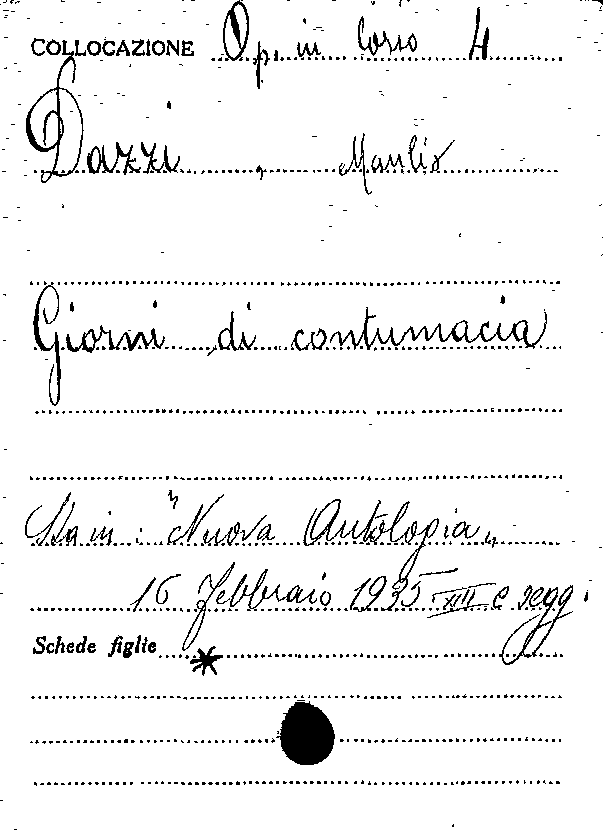 COLLOCAZIONE Op. in Corso 4
Dazzi, Manlio
Giorni di contumacia
Sta in: "Nuova Antologia„
16 febbraio 1935 XIII e segg.
Schede figlie *